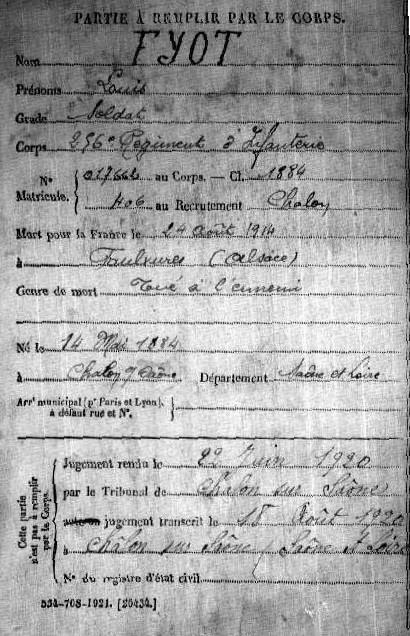 PARTIE À REMPLIR PAR LE CORPS.
Nom FYOT
Prénoms Louis
Grade Soldat
Corps 256e Régiment d'Infanterie
N° Matricule. { 017662 au Corps. — Cl. 1884
406 au Recrutement Chalon
Mort pour la France le 24 août 1914
à Faulxures (Alsace)
Genre de mort Tué à l'ennemi
Né le 14 Mai 1884
à Chalon s/ Saône Département Saône et Loire
Arrt municipal (pr Paris et Lyon), à défaut rue et N°.
Cette partie n'est pas à remplir par le Corps.
Jugement rendu le 22 Juin 1920
par le Tribunal de Châlon sur Saône
jugement transcrit le 18 Août 1920
à Châlon sur Saône, Saône et Loire
N° du registre d'état civil
534-708-1921. [26434.]